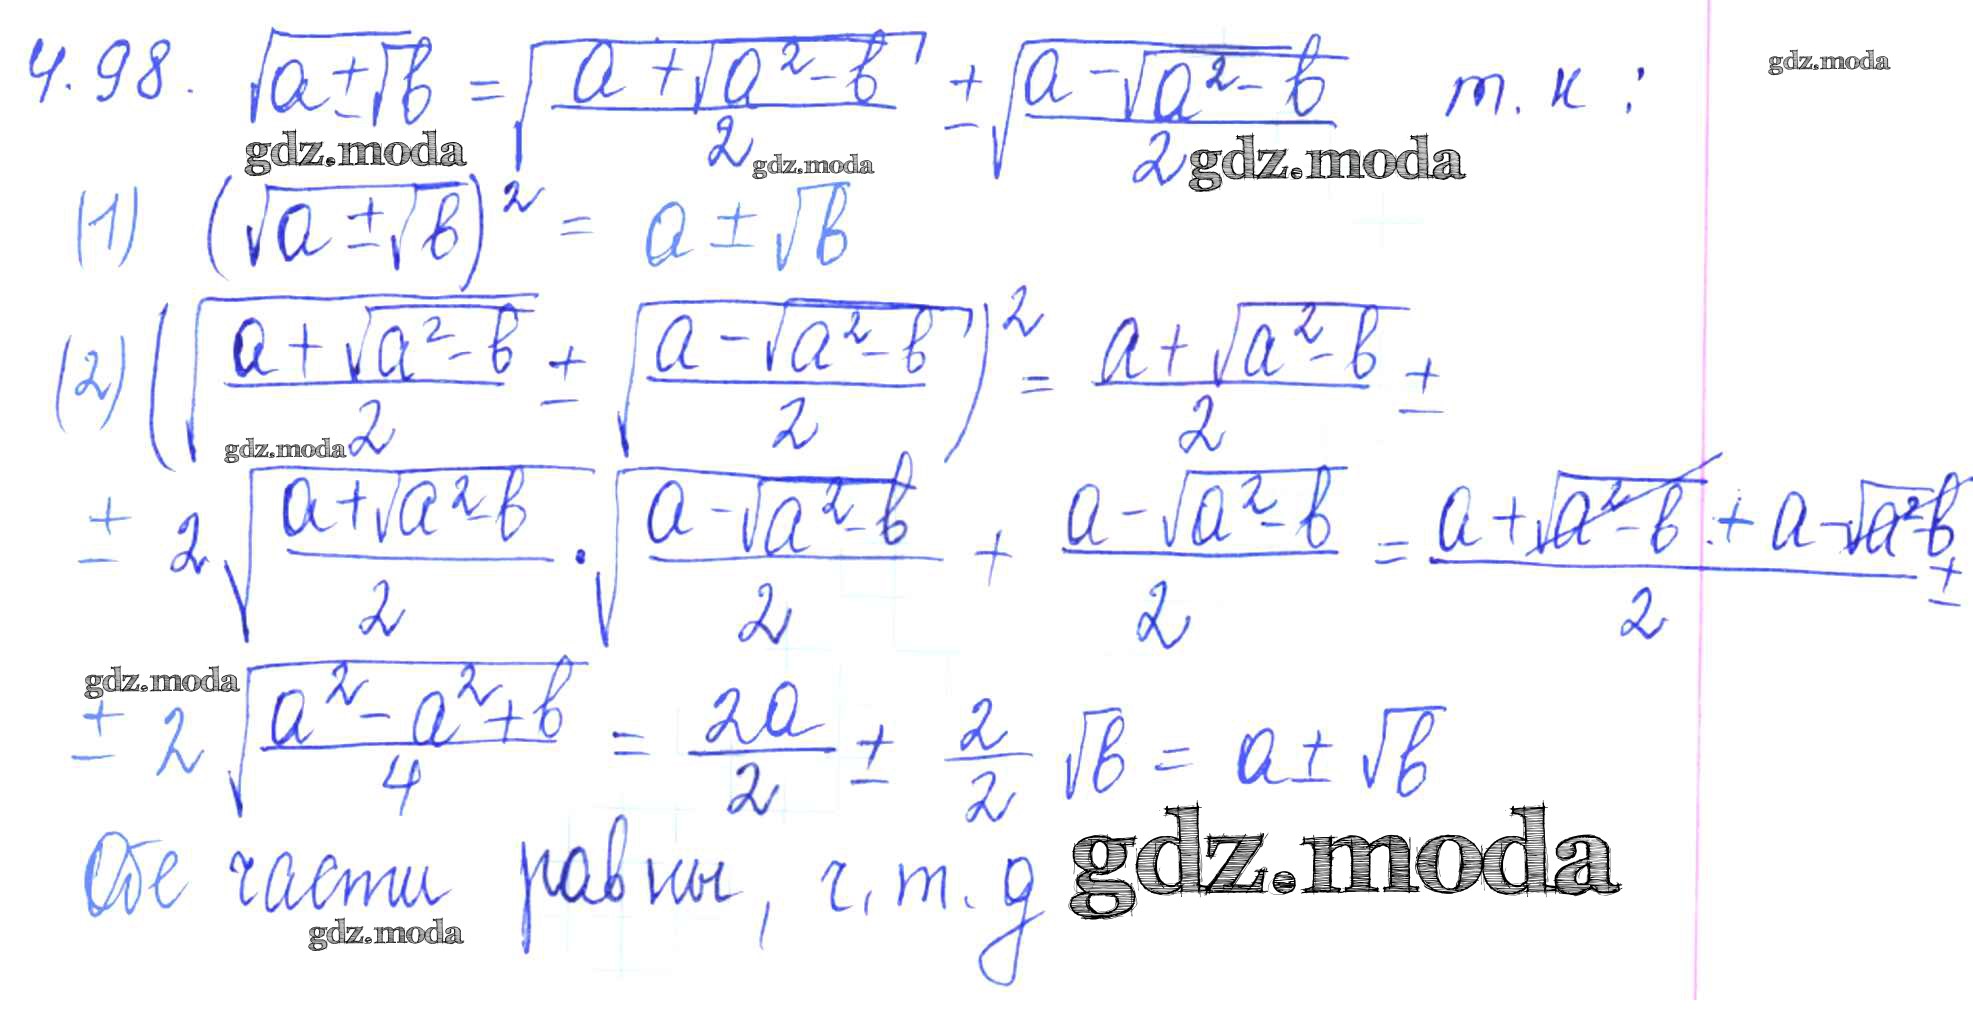 4.98. √(a±√b) = √((a+√(a²-b))/2) ± √((a-√(a²-b))/2) т. к :
gdz.moda
gdz.moda gdz.moda gdz.moda
(1) (√(a±√b))² = a ± √b
(2) (√((a+√(a²-b))/2) ± √((a-√(a²-b))/2))² = (a+√(a²-b))/2 ±
gdz.moda
± 2√((a+√(a²-b))/2) · √((a-√(a²-b))/2) + (a-√(a²-b))/2 = (a+√(a²-b) + a-√(a²-b))/2 ±
gdz.moda
± 2√((a²-a²+b)/4) = 2a/2 ± 2/2 √b = a ± √b
Обе части равны, ч. т. д
gdz.moda
gdz.moda